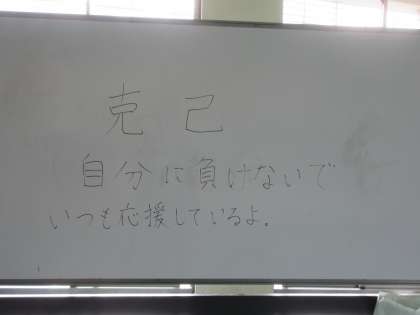 克己
自分に負けないで
いつも応援しているよ。